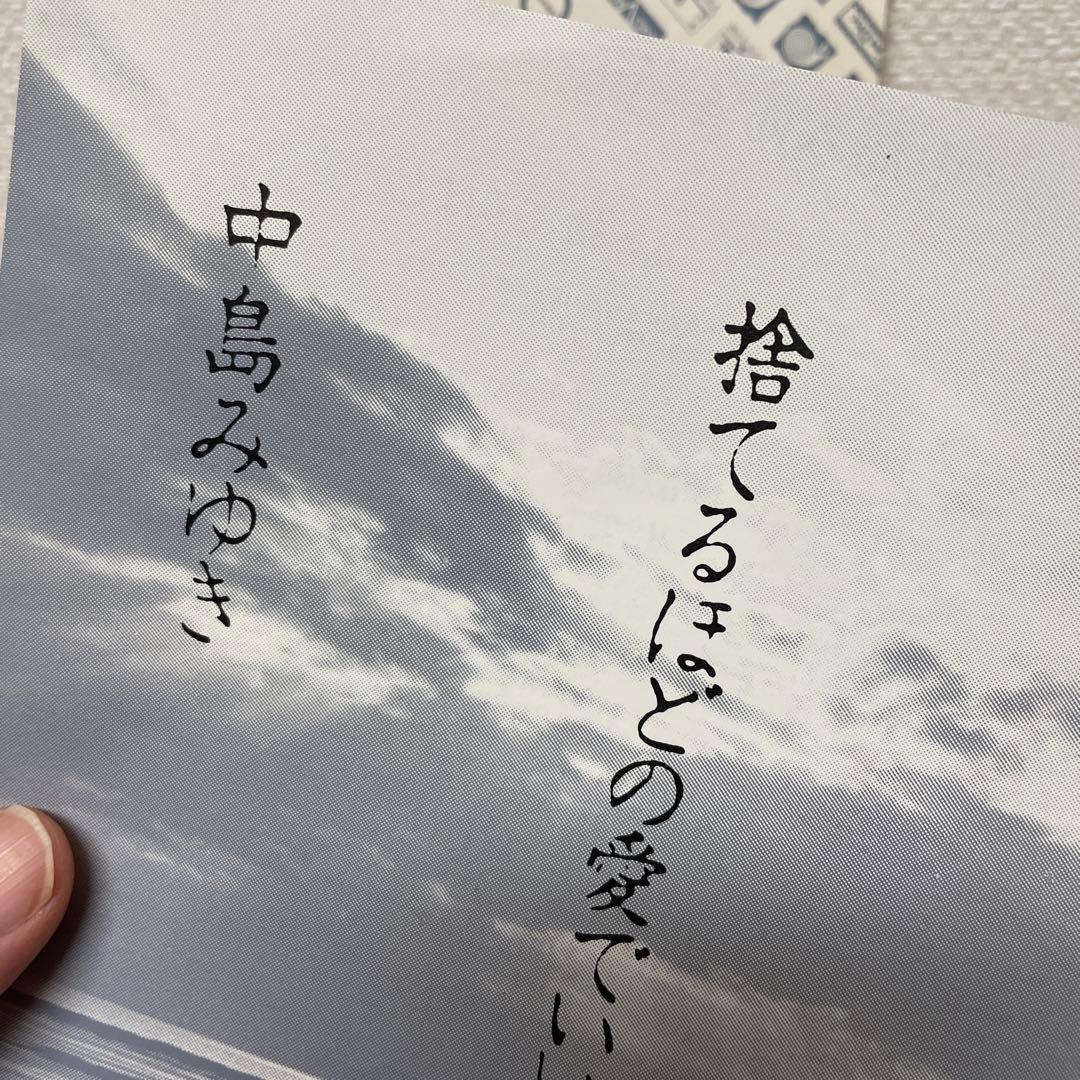 捨てるほどの愛でい
中島みゆき